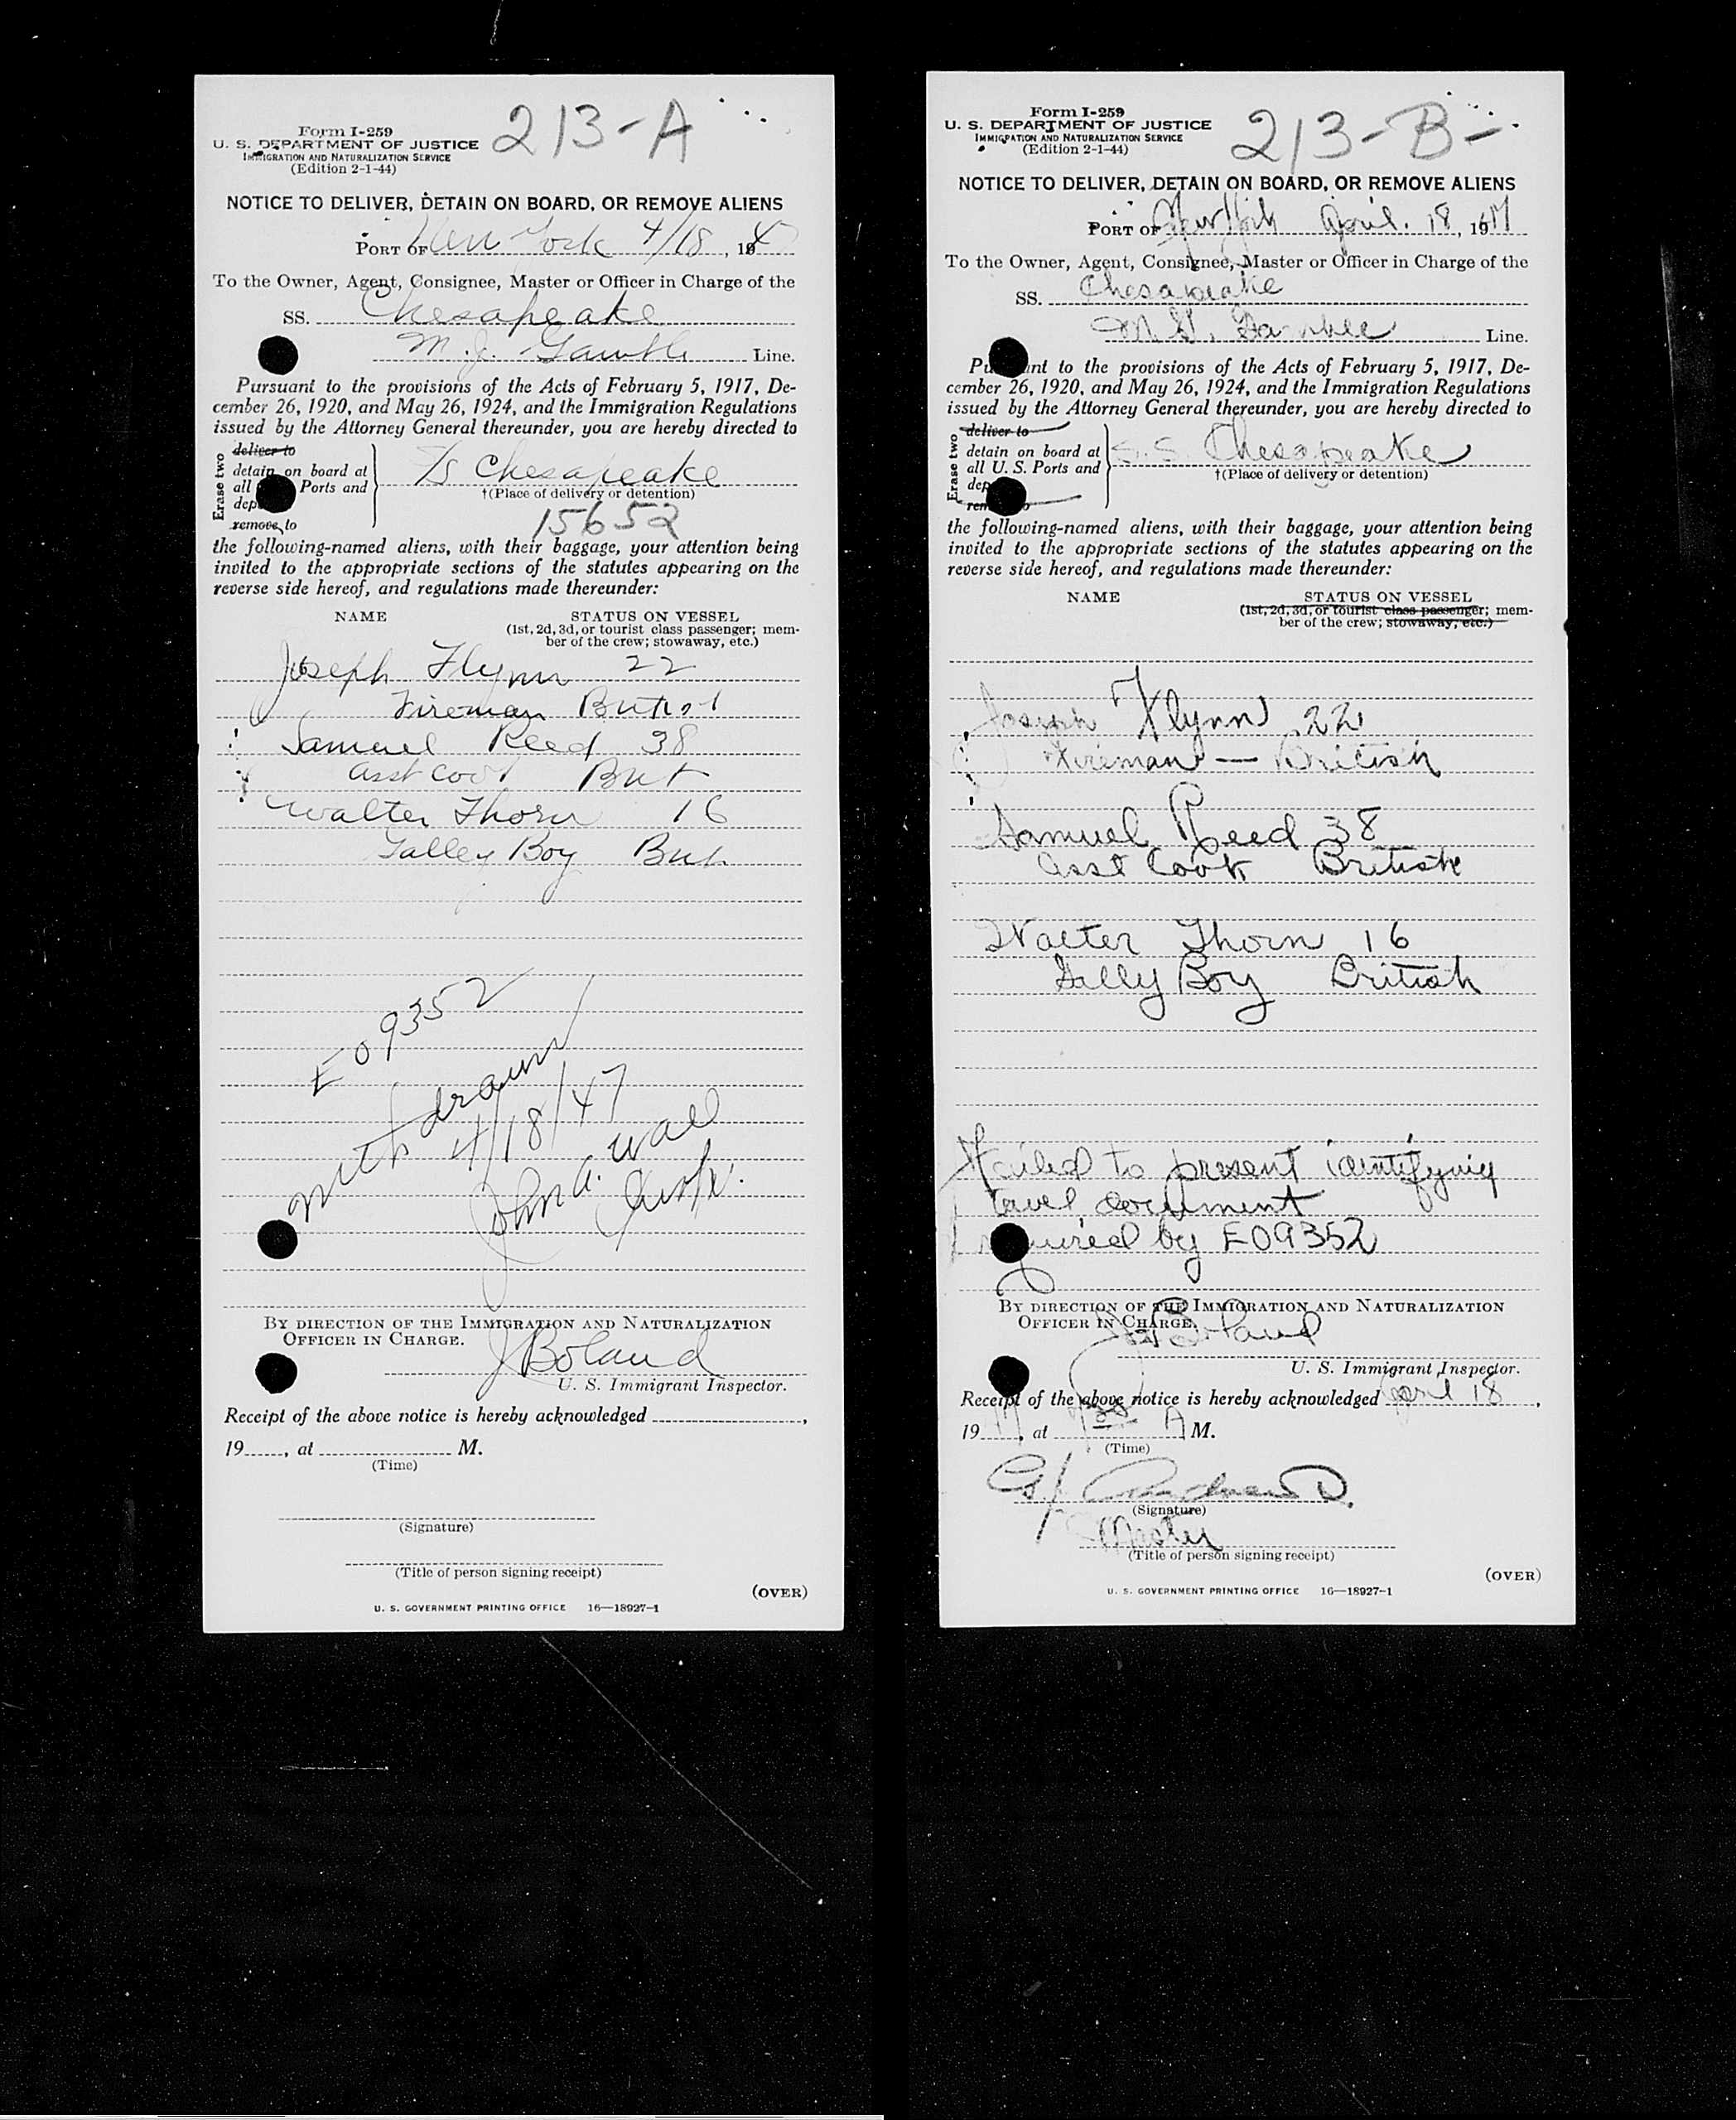 213-A
Form I-259
U. S. DEPARTMENT OF JUSTICE
IMMIGRATION AND NATURALIZATION SERVICE
(Edition 2-1-44)
NOTICE TO DELIVER, DETAIN ON BOARD, OR REMOVE ALIENS
PORT OF New York 4/18, 194
To the Owner, Agent, Consignee, Master or Officer in Charge of the
SS. Chesapeake
M. J. Gamble Line.
Pursuant to the provisions of the Acts of February 5, 1917, De-
cember 26, 1920, and May 26, 1924, and the Immigration Regulations
issued by the Attorney General thereunder, you are hereby directed to
Erase two
deliver to
detain on board at
all Ports and
dep
remove to
Chesapeake
†(Place of delivery or detention)
15652
the following-named aliens, with their baggage, your attention being
invited to the appropriate sections of the statutes appearing on the
reverse side hereof, and regulations made thereunder:
NAME STATUS ON VESSEL
(1st, 2d, 3d, or tourist class passenger; mem-
ber of the crew; stowaway, etc.)
Joseph Flynn 22
Fireman British
Samuel Reed 38
Asst Cook Brit
Walter Thorn 16
Galley Boy Brit
E09352
withdrawn
4/18/47
John A. Wall
Insp.
BY DIRECTION OF THE IMMIGRATION AND NATURALIZATION
OFFICER IN CHARGE.
J Boland
U. S. Immigrant Inspector.
Receipt of the above notice is hereby acknowledged ,
19 , at M.
(Time)
(Signature)
(Title of person signing receipt)
(OVER)
U. S. GOVERNMENT PRINTING OFFICE 16—18927-1
213-B-
Form I-259
U. S. DEPARTMENT OF JUSTICE
IMMIGRATION AND NATURALIZATION SERVICE
(Edition 2-1-44)
NOTICE TO DELIVER, DETAIN ON BOARD, OR REMOVE ALIENS
PORT OF New York April. 18, 1947
To the Owner, Agent, Consignee, Master or Officer in Charge of the
SS. Chesapeake
M. J. Gamble Line.
Pu nt to the provisions of the Acts of February 5, 1917, De-
cember 26, 1920, and May 26, 1924, and the Immigration Regulations
issued by the Attorney General thereunder, you are hereby directed to
Erase two
deliver to
detain on board at
all U. S. Ports and
dep
rem o
S.S. Chesapeake
†(Place of delivery or detention)
the following-named aliens, with their baggage, your attention being
invited to the appropriate sections of the statutes appearing on the
reverse side hereof, and regulations made thereunder:
NAME STATUS ON VESSEL
(1st, 2d, 3d, or tourist class passenger; mem-
ber of the crew; stowaway, etc.)
Joseph Flynn 22
Fireman — British
Samuel Reed 38
Asst Cook British
Walter Thorn 16
Gally Boy British
Failed to present identifying
travel document
required by E09352
BY DIRECTION OF THE IMMIGRATION AND NATURALIZATION
OFFICER IN CHARGE.
J Boland
U. S. Immigrant Inspector.
Receipt of the above notice is hereby acknowledged April 18,
19 , at A M.
(Time)
(Signature)
Master
(Title of person signing receipt)
(OVER)
U. S. GOVERNMENT PRINTING OFFICE 16—18927-1